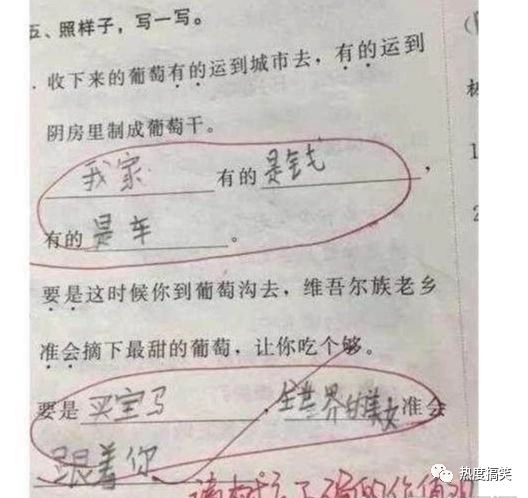 五、照样子,写一写。
. 收下来的葡萄有的运到城市去,有的运到
阴房里制成葡萄干。
我家有的是钱,
有的是车。
要是这时候你到葡萄沟去,维吾尔族老乡
准会摘下最甜的葡萄,让你吃个够。
要是买宝马,全世界的美女准会
跟着你
请树立正确的价值
热度搞笑
1
2